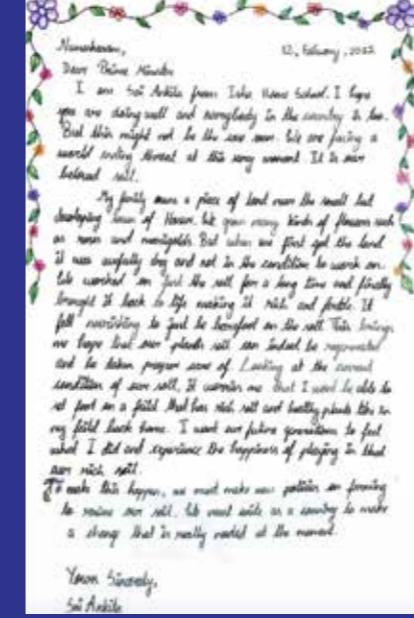 Namaskaram, 12, February, 2022
Dear Prime Minister
I am Sai Ankita from Isha Home School. I hope
you are doing well and everybody in the country is too.
But this might not be the case soon. We are facing a
world ending threat at this very moment. It is our
beloved soil.
My family owns a piece of land near the small but
developing town of Hosur. We grow many kinds of flowers such
as roses and marigolds. But when we first got the land
it was awfully dry and not in the condition to work on.
We worked on just the soil for a long time and finally
brought it back to life making it rich and fertile. It
felt nourishing to just be barefoot on the soil. This brings
me hope that our planets soil can indeed be regenerated
and be taken proper care of. Looking at the current
condition of our soil, It worries me that I wont be able to
set foot on a field that has rich soil and healthy plants like in
my field back home. I want our future generations to feel
what I did and experience the happiness of playing in that
rich soil.
To make this happen, we must make new policies in farming
to revive our soil. We must unite as a country to make
a change that is really needed at the moment.
Yours Sincerely,
Sai Ankita